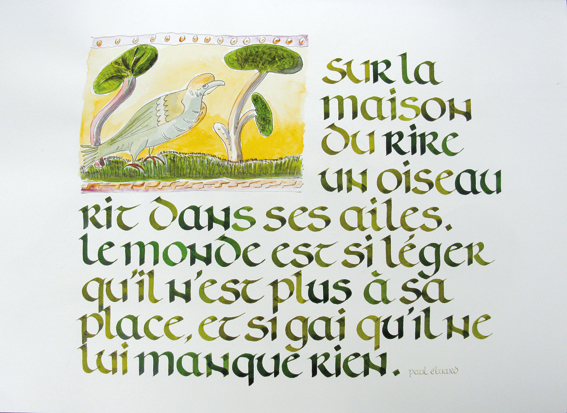 sur la
maison
du rire
un oiseau
rit dans ses ailes.
le monde est si léger
qu'il n'est plus à sa
place, et si gai qu'il ne
lui manque rien.
paul eluard